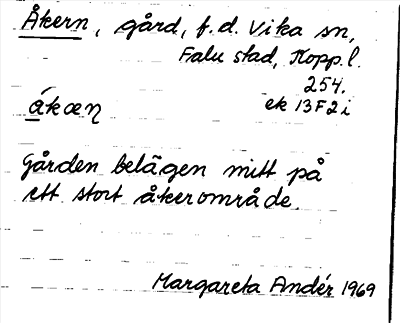 Åkern, gård, f.d. Vika sn,
Falu stad, Kopp.l.
254.
ákæn ek 13F2i
Gården belägen mitt på
ett stort åkerområde.
Margareta Andér 1969